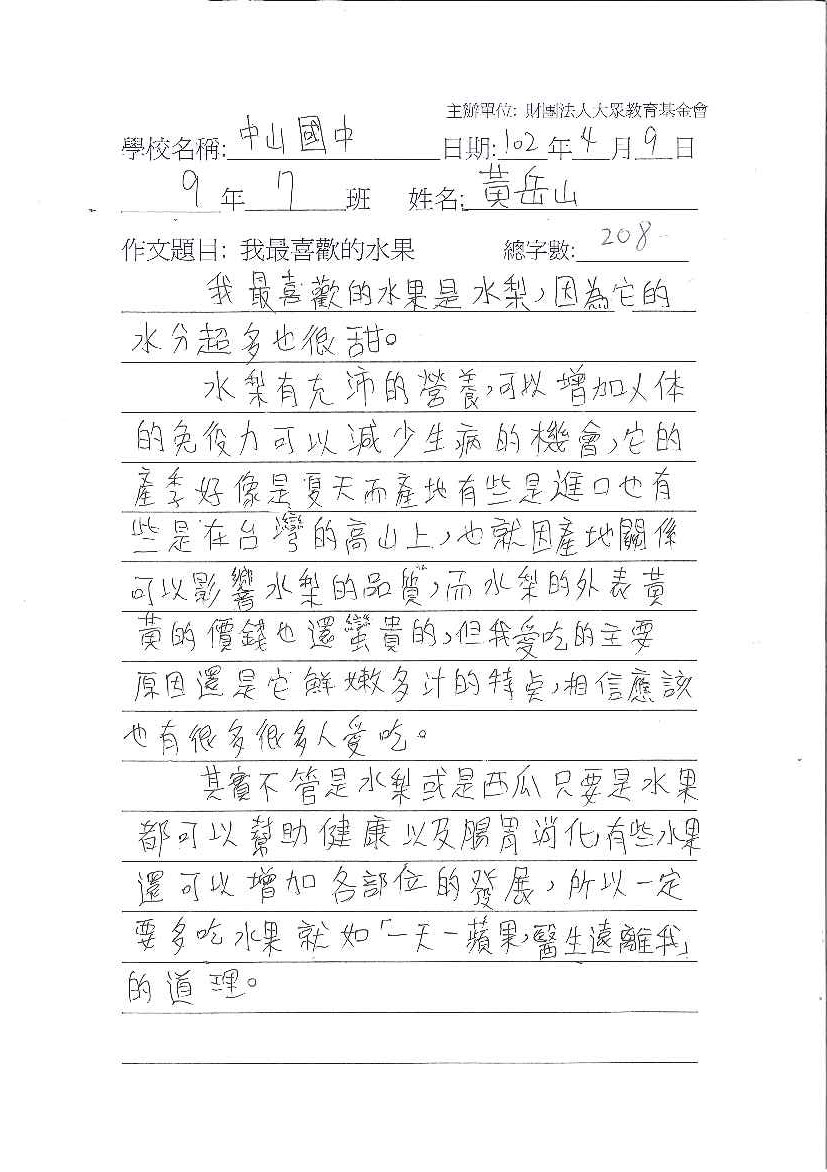 主辦單位: 財團法人大眾教育基金會
學校名稱: 中山國中 日期: 102 年 4 月 9 日
9 年 7 班 姓名: 黃岳山
作文題目: 我最喜歡的水果 總字數: 208
我最喜歡的水果是水梨,因為它的
水分超多也很甜。
水梨有充沛的營養,可以增加人体
的免疫力可以減少生病的機會,它的
產季好像是夏天而產地有些是進口也有
些是在台灣的高山上,也就因產地關係
可以影響水梨的品質,而水梨的外表黃
黃的價錢也還蠻貴的,但我愛吃的主要
原因還是它鮮嫩多汁的特点,相信應該
也有很多很多人愛吃。
其實不管是水梨或是西瓜只要是水果
都可以幫助健康以及腸胃消化,有些水果
還可以增加各部位的發展,所以一定
要多吃水果就如「一天一蘋果,醫生遠離我」
的道理。